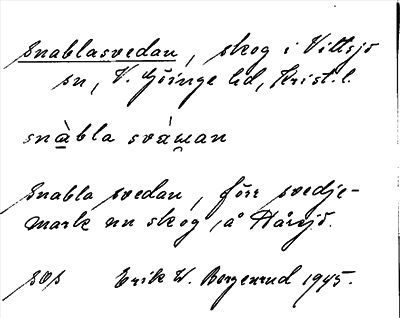 Snablasvedan, skog i Vittsjö
sn, V. Göinge hd, Krist. l.
snàbla sváwan
Snabla svedan, förr svedje-
mark nu skog, å Hårsjö.
Erik W. Borgenrud 1945.